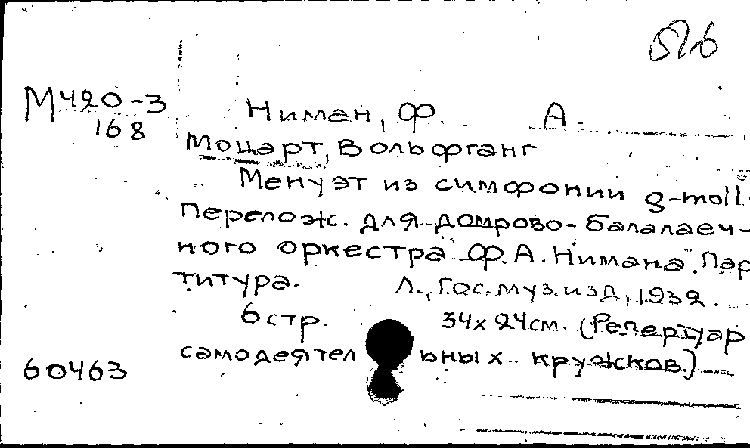 М420-3
168
Ниман, Ф. А.
Моцарт, Вольфганг
Менуэт из симфонии g-moll.
Перелож. для домрово-балалаеч-
ного оркестра Ф.А. Нимана. Пар
титура. Л., Гос. муз. изд, 1932.
6 стр. 34х24см. (Репертуар
самодеятельных кружков.)
60463